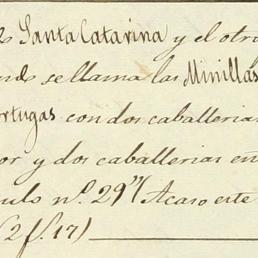 Santa Catarina y el otro
se llama las Minillas
ortugas con dos caballerias
or y dos caballerias en
ulo nº. 29" Acaso este
(2 f. 17)